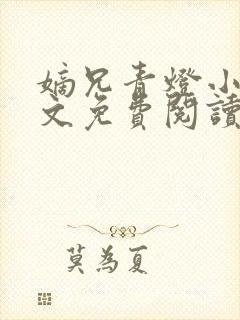 嫡兄青燈小
文免費閱讀
莫為夏